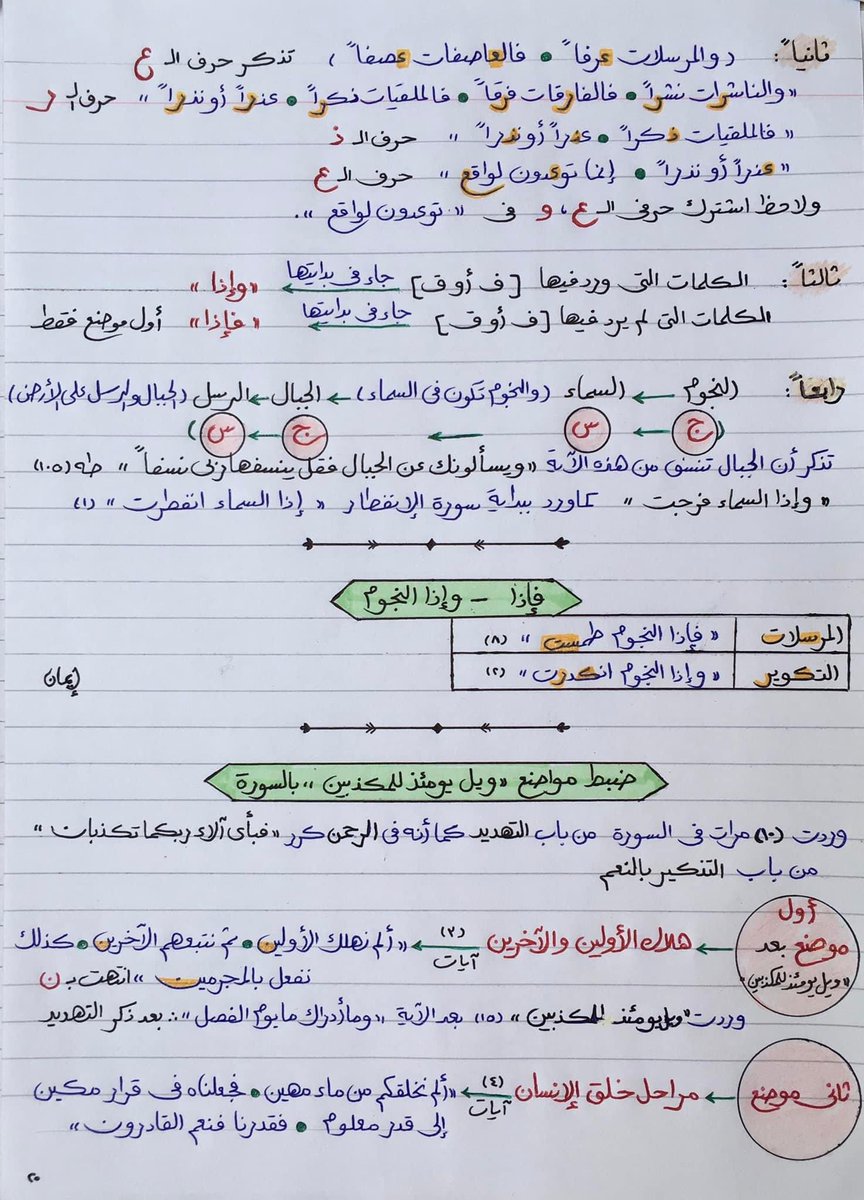 ثانياً: (والمرسلات عرفاً • فالعاصفات عصفاً) تذكر حرف الـ ع
«والناشرات نشراً • فالفارقات فرقاً • فالملقيات ذكراً • عذراً أو نذراً» حرف الـ ر
«فالملقيات ذكراً • عذراً أو نذراً» حرف الـ ذ
«عذراً أو نذراً • إنما توعدون لواقع» حرف الـ ع
ولاحظ اشترك حرفى الـ ع، و فى «توعدون لواقع».
ثالثاً: الكلمات التى ورد فيها [ف أو ق] جاء فى بدايتها «وإذا»
الكلمات التى لم يرد فيها [ف أو ق] جاء فى بدايتها «فإذا» أول موضع فقط
رابعاً: النجوم ← السماء (والنجوم تكون فى السماء) ← الجبال ← الرسل (الجبال والرسل على الأرض)
(ج ← س ← ج ← س)
تذكر أن الجبال تنسق من هذه الآية «ويسألونك عن الجبال فقل ينسفها ربى نسفاً» طه (١٠٥)
«وإذا السماء فرجت» كما ورد ببداية سورة الإنفطار «إذا السماء انفطرت» (١)
فإذا - وإذا النجوم
المرسلات «فإذا النجوم طمست» (٨)
التكوير «وإذا النجوم انكدرت» (٢)
إيمان
ضبط مواضع «ويل يومئذ للمكذبين» بالسورة
وردت (١٠) مرات فى السورة من باب التهديد كما أنه فى الرحمن كرر «فبأى آلاء ربكما تكذبات»
من باب التذكير بالنعم
أول موضع بعد «ويل يومئذ للمكذبين» ← هلاك الأولين والآخرين ← (٣) آيات «ألم نهلك الأولين • ثم نتبعهم الآخرين • كذلك
نفعل بالمجرمين» انتهت بـ ن
وردت «ويل يومئذ للمكذبين» (١٥) بعد الآية «وما أدراك ما يوم الفصل» ∴ بعد ذكر التهديد
ثانى موضع ← مراحل خلق الإنسان ← (٤) آيات «ألم نخلقكم من ماء مهين • فجعلناه فى قرار مكين
إلى قدر معلوم • فقدرنا فنعم القادرون»
٢٠